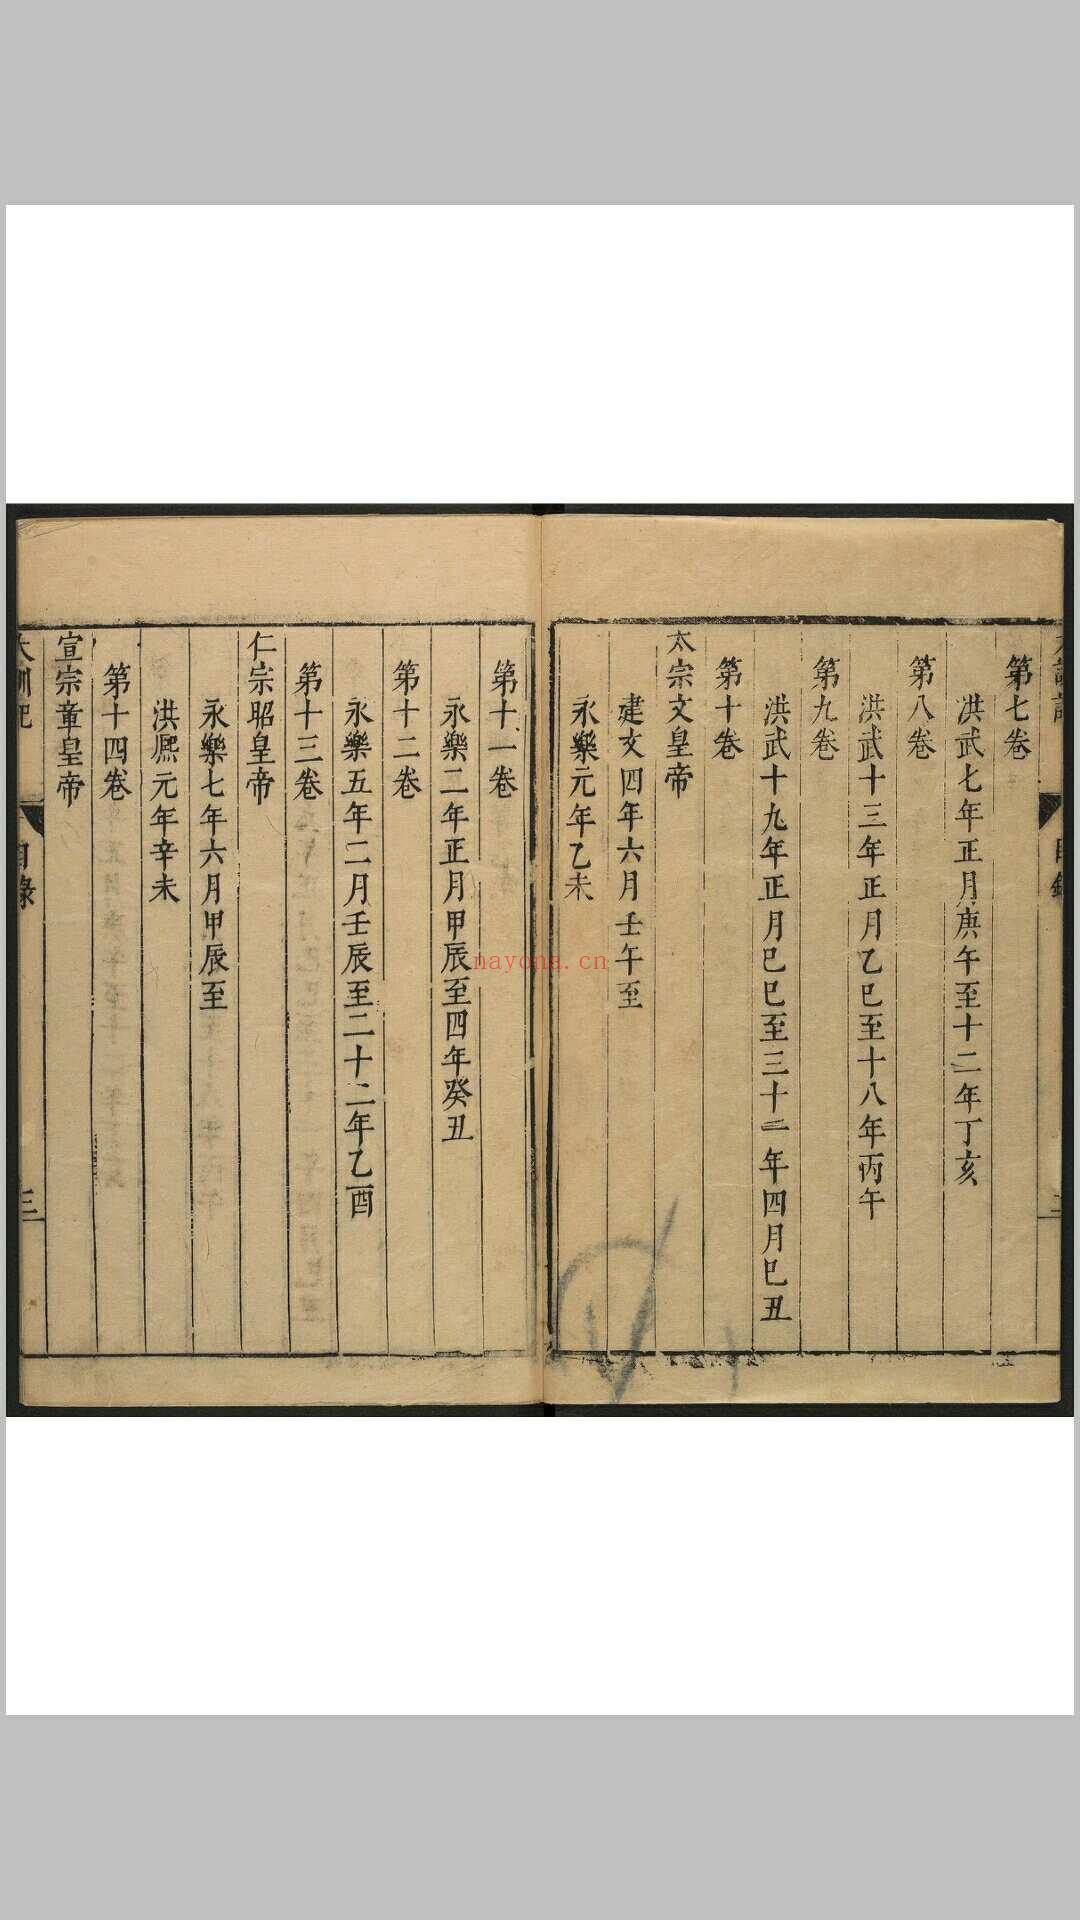 第七卷
洪武七年正月庚午至十二年丁亥
第八卷
洪武十三年正月乙巳至十八年丙午
第九卷
洪武十九年正月巳巳至三十一年四月巳丑
第十卷
太宗文皇帝
建文四年六月壬午至
永樂元年乙未
第十一卷
永樂二年正月甲辰至四年癸丑
第十二卷
永樂五年二月壬辰至二十二年乙酉
第十三卷
仁宗昭皇帝
永樂七年六月甲辰至
洪熈元年辛未
第十四卷
宣宗章皇帝
大訓記 目錄 三
nayona.cn